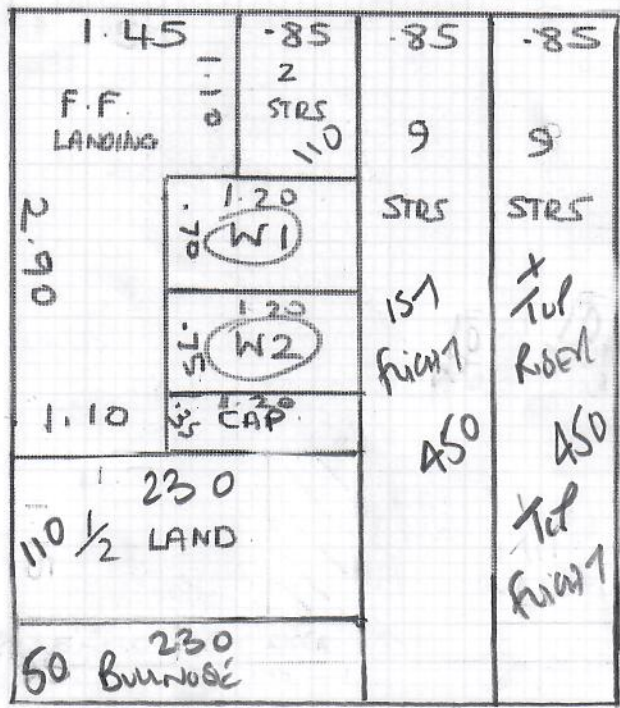 1.45
1.10
F.F.
LANDING
2.90
1.10
.85
2
STRS
110
1.20
.70
W1
1.20
.75
W2
1.20
.35
CAP
230
110
1/2 LAND
230
60 BULLNOSE
.85
9
STRS
1ST
FLIGHT
450
.85
9
STRS
+
TOP
RISER
450
TOP
FLIGHT